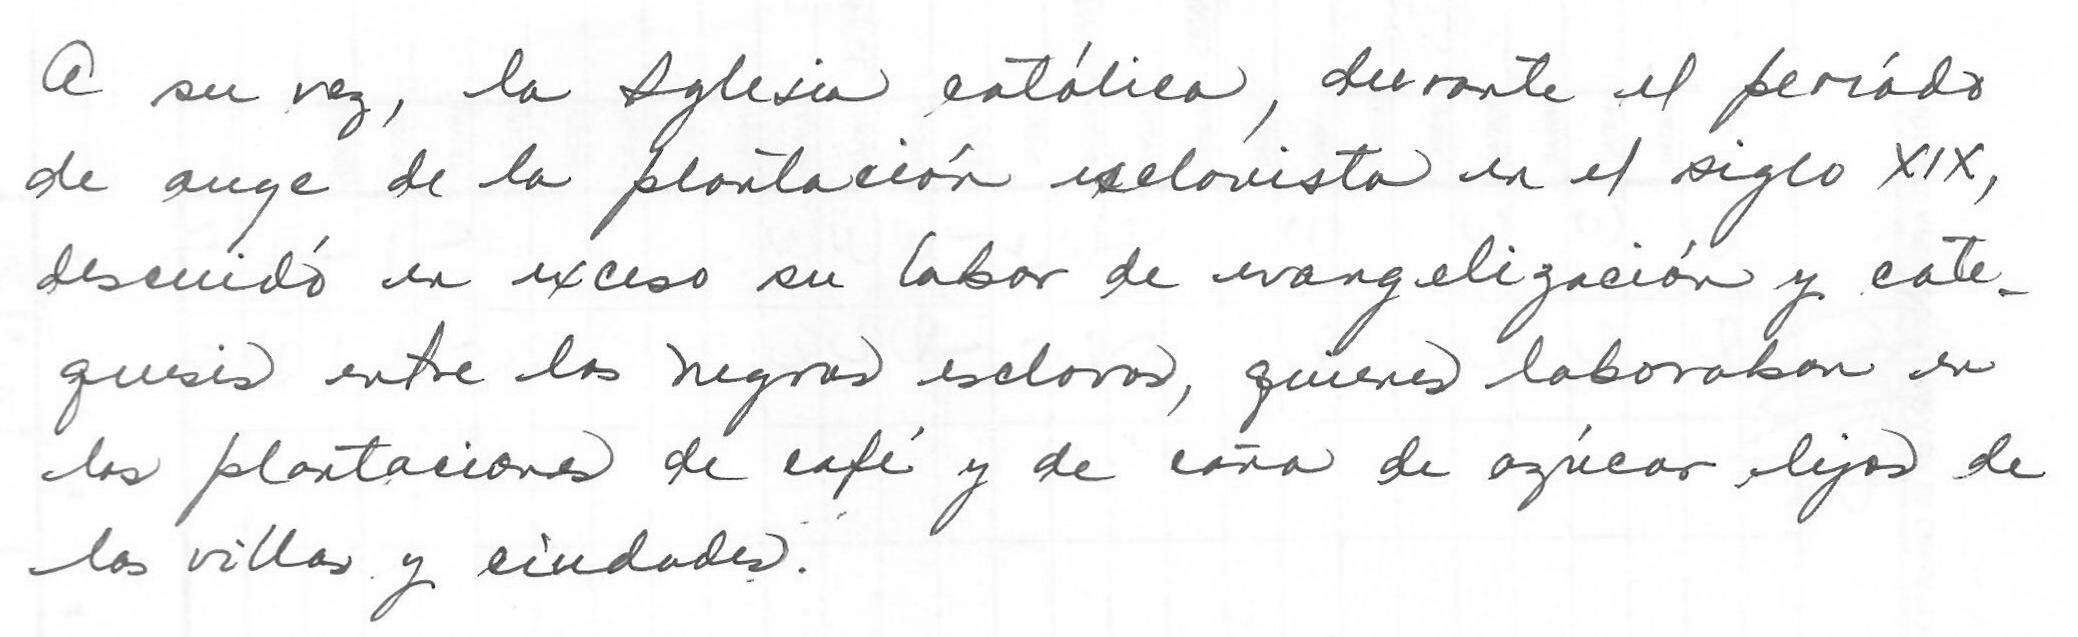 A su vez, la Iglesia católica, durante el período
de auge de la plantación esclavista en el siglo XIX,
descuidó en exceso su labor de evangelización y cate-
quesis entre los negros esclavos, quienes laboraban en
las plantaciones de café y de caña de azúcar lejos de
las villas y ciudades.